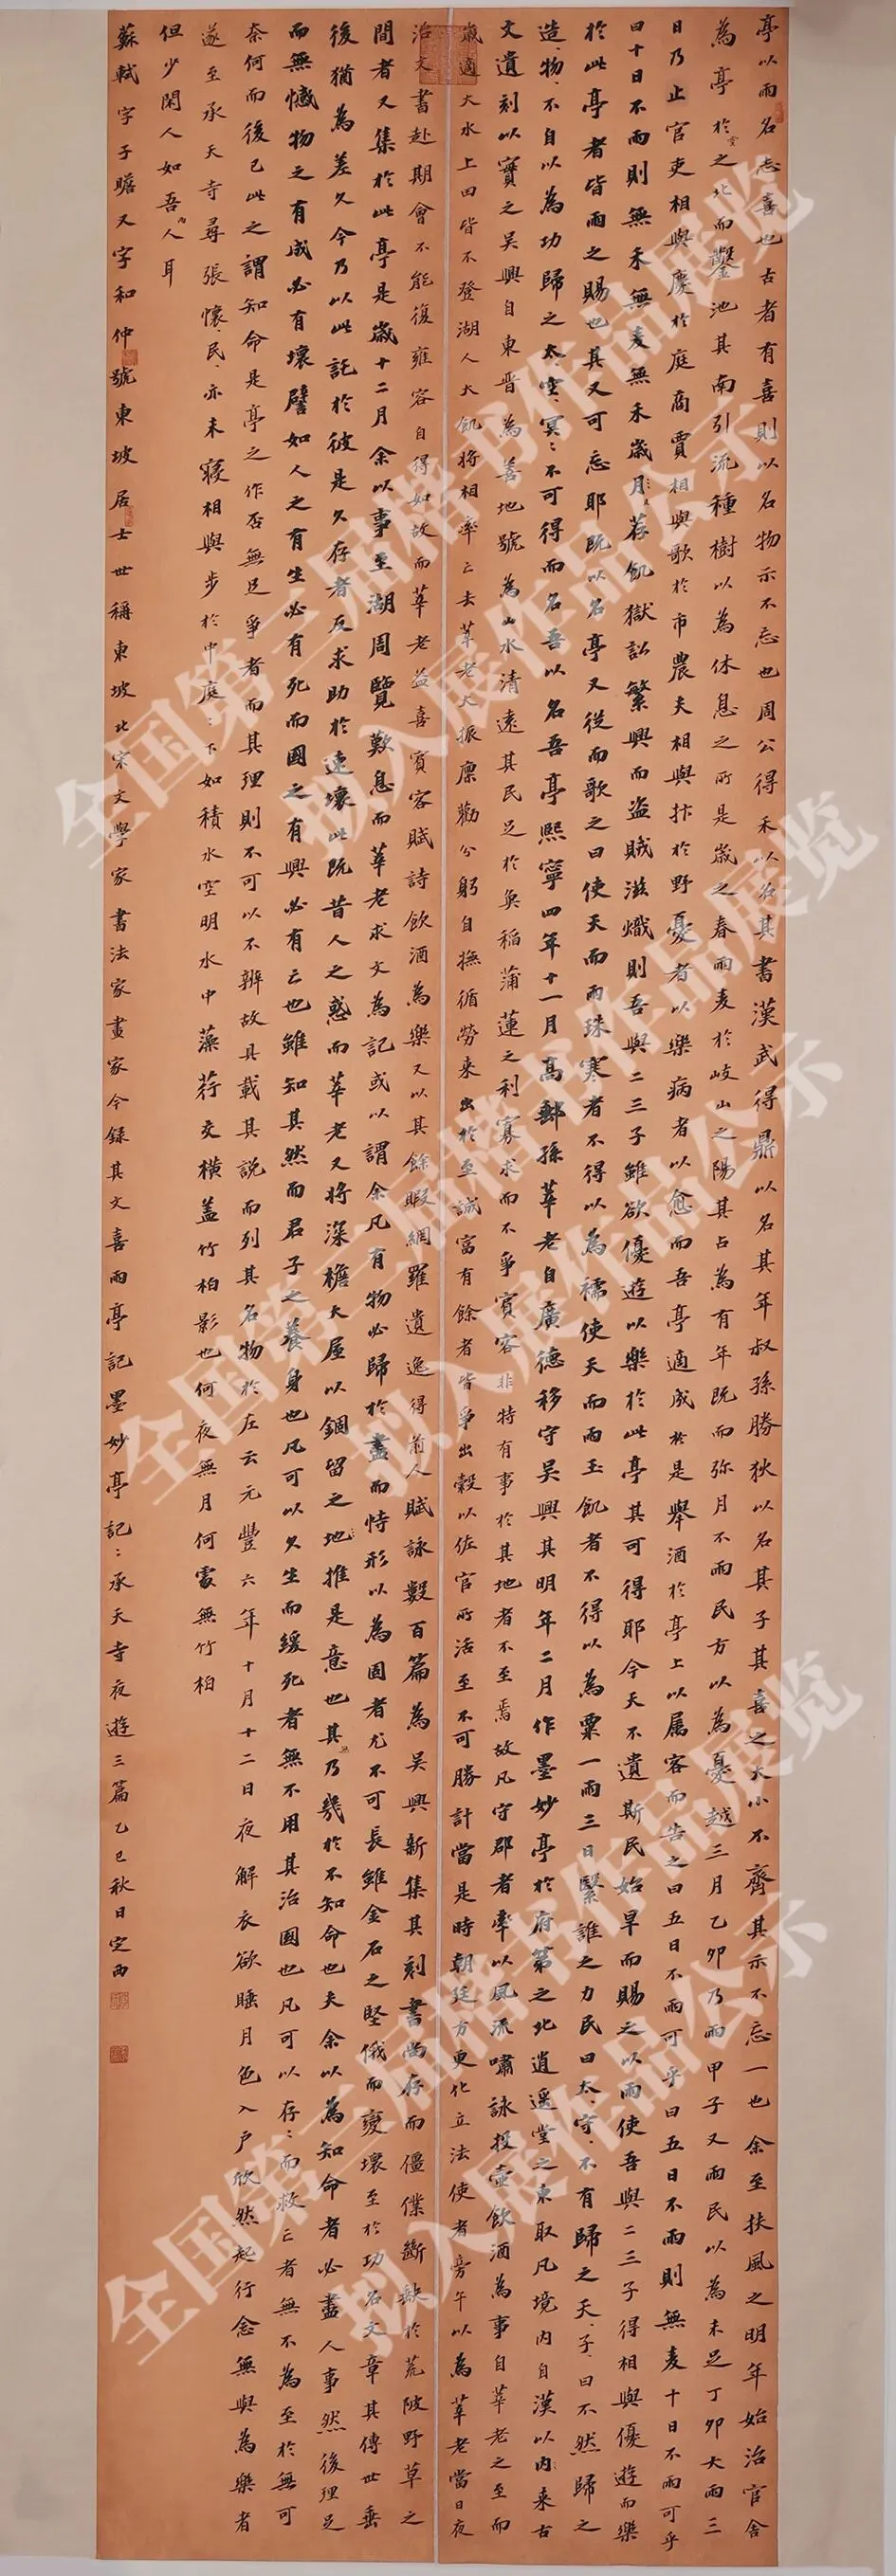 亭以雨名志喜也古者有喜則以名物示不忘也周公得禾以名其書漢武得鼎以名其年叔孫勝狄以名其子其喜之大小不齊其示不忘一也余至扶風之明年始治官舍
為亭於堂之北而鑿池其南引流種樹以為休息之所是歲之春雨麦於岐山之陽其占為有年既而弥月不雨民方以為憂越三月乙卯乃雨甲子又雨民以為未足丁卯大雨三
日乃止官吏相與慶於庭商賈相與歌於市農夫相與抃於野憂者以樂病者以愈而吾亭適成於是舉酒於亭上以属客而告之曰五日不雨可乎曰五日不雨則無麦十日不雨可乎
曰十日不雨則無禾無麦無禾歲月荐飢獄訟繁興而盗賊滋熾則吾與二三子雖欲優遊以樂於此亭其可得耶今天不遺斯民始旱而賜之以雨使吾與二三子得相與優遊而樂
於此亭者皆雨之賜也其又可忘耶既以名亭又從而歌之曰使天而雨珠寒者不得以為襦使天而雨玉飢者不得以為粟一雨三日繄誰之力民曰太〻守〻不有歸之天〻子〻曰不然歸之
造〻物〻不自以為功歸之太〻空〻冥〻不可得而名吾以名吾亭熙寧四年十一月高郵孫莘老自廣德移守吳興其明年二月作墨妙亭於府第之北逍遥堂之東取凡境内自漢以内来古
文遺刻以實之吳興自東晋為善地號為山水清遠其民足於魚稻蒲蓮之利寡求而不爭賓客非特有事於其地者不至焉故凡守郡者率以風流嘯詠投壺飲酒為事自莘老之至而
歲適大水上田皆不登湖人大飢將相率亡去莘老大振廩勸分躬自撫循勞来出於至誠富有餘者皆爭出穀以佐官所活至不可勝計當是時朝廷方更化立法使者旁午以為莘老當日夜
治文書赴期會不能復雍容自得如故而莘老益喜賓客賦詩飲酒為樂又以其餘暇網羅遺逸得前人賦詠數百篇為吳興新集其刻書尚存而僵僕斷缺於荒陂野草之
間者又集於此亭是歲十二月余以事至湖周覽歎息而莘老求文為記或以謂余凡有物必歸於盡而恃形以為固者尤不可長雖金石之堅俄而變壞至於功名文章其傳世垂
後猶為差久今乃以此託於彼是久存者反求助於速壞此既昔人之惑而莘老又將深檐大屋以錮留之地推是意也其乃幾於不知命也夫余以為知命者必盡人事然後理足
而無憾物之有成必有壞譬如人之有生必有死而國之有興必有亡也雖知其然而君子之養身也凡可以久生而緩死者無不用其治國也凡可以存〻而救亡者無不為至於無可
奈何而後已此之謂知命是亭之作否無足爭者而其理則不可以不辨故具載其說而列其名物於左云元豐六年十月十二日夜解衣欲睡月色入户欣然起行念無與為樂者
遂至承天寺尋張懷民〻亦未寢相與步於中庭〻下如積水空明水中藻荇交橫盖竹柏影也何夜無月何處無竹柏
但少閑人如吾两人耳
蘇軾字子瞻又字和仲號東坡居士世稱東坡北宋文學家書法家畫家今録其文喜雨亭記墨妙亭記〻承天寺夜遊三篇乙巳秋日定西
全国第三届楷书作品展览
拟入展作品公示
全国第三届楷书作品展览
拟入展作品公示
全国第三届楷书作品展览
拟入展作品公示